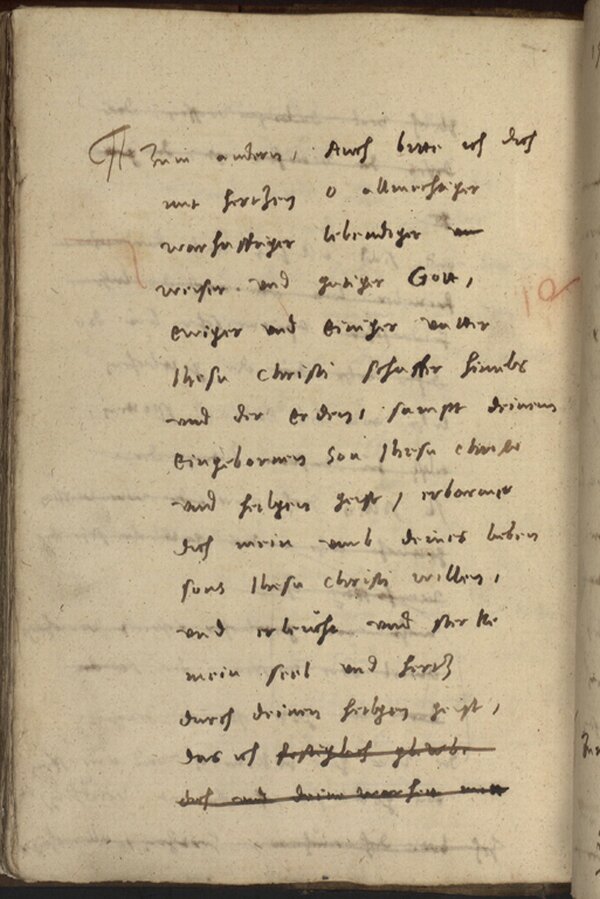 Zum andern, Auch bitte ich dich
mit hertzen o allmechtiger
warhafftiger lebendiger
weiser und gutiger Gott,
Ewiger und Einicher vatter
Jhesu Christi schaffer himels
und der Erden, sampt deinem
Eingebornen Son Jhesu Christo
und heiligen geist, erbarme
dich mein umb deines lieben
sons Jhesu Christi willen,
und erleucht und sterke
mein seel und hertz
durch deinen heiligen geist,
das ich festiglich glaube
dich und deine